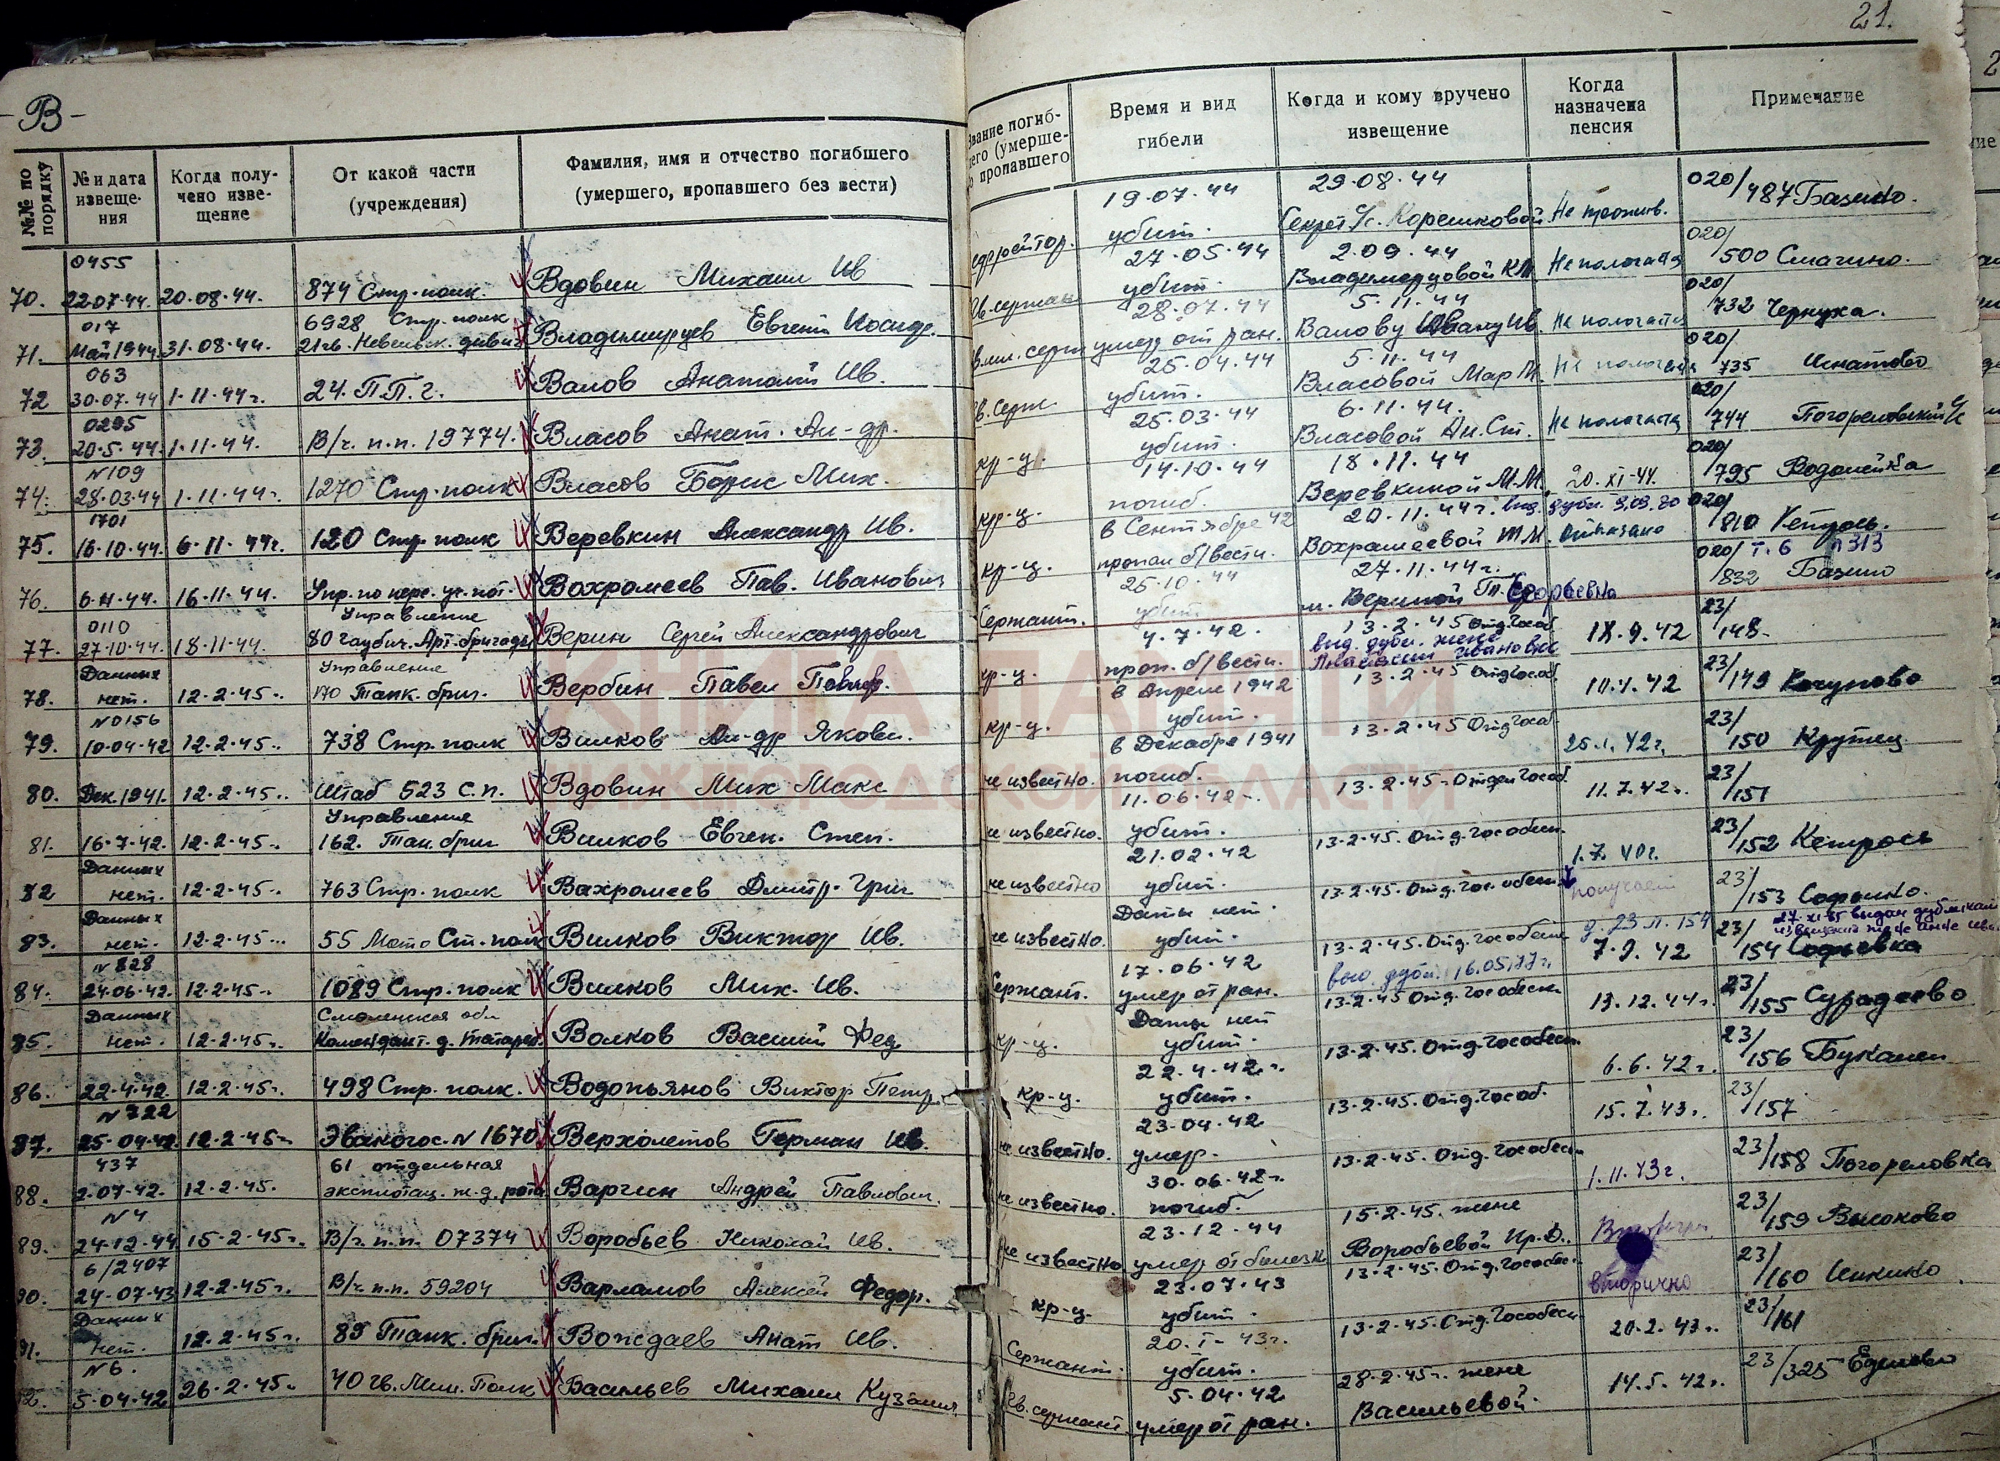 -В-
№№ по порядку
№ и дата извеще-ния
Когда полу-чено изве-щение
От какой части (учреждения)
Фамилия, имя и отчество погибшего (умершего, пропавшего без вести)
0455
70. 22.07.44. 20.08.44. 874 Стр. полк. Вдовин Михаил Ив
017 6928 Стр. полк
71. Май 1944 31.08.44. 21 гв. Невельск. дивиз Владимирцев Евгений Иосиф.
063
72 30.07.44 1.11.44г. 24. П.П.г. Валов Анатолий Ив.
0295
73. 20.5.44. 1.11.44. В/ч. п.п. 19774. Власов Анат. Ал-др.
N109
74. 28.03.44 1.11.44г. 1270 Стр. полк Власов Борис Мих.
1701
75. 16.10.44. 6.11.44г. 120 Стр. полк Веревкин Александр Ив.
76. 6.11.44. 16.11.44. Упр. по перс. уч. пот. Вохромеев Пав. Иванович
0110 Управление
77. 27.10.44. 18.11.44. 80 гаубич. Арт. бригады Верин Сергей Александрович
Данных Управление
78. нет. 12.2.45г. 170 Танк. бриг. Вербин Павел Павлов.
N0156
79. 10.04.42 12.2.45г. 738 Стр. полк Вилков Ал-др Якови.
80. Дек. 1941. 12.2.45г. Штаб 523 с.п. Вдовин Мих Макс
Управление
81. 16.7.42. 12.2.45г. 162. Тан. бриг Вилков Евген. Степ.
Данных
82 нет. 12.2.45г. 763 Стр. полк Вахромеев Дмитр. Григ
Данных
83. нет. 12.2.45г. 55 Мото Ст. полк Вилков Виктор Ив.
N 828
84. 24.06.42. 12.2.45г. 1089 Стр. полк Вилков Мих. Ив.
Данных Смоленская обл
85. нет. 12.2.45г. Комендант. д. Татарев. Волков Василий Фед
86. 22.4.42 12.2.45г. 498 Стр. полк. Водопьянов Виктор Петр.
N 722
87. 25.04.42. 12.2.45г. Эвакогос. N 1670 Верхолетов Герман Ив.
437 61 отдельная
88. 2.07.42. 12.2.45г. эксплотац. ж.д. рота Варгин Андрей Павлович.
N 4
89. 24.12.44 15.2.45г. В/ч. п.п. 07374 Воробьев Николай Ив.
6/2407
90. 24.07.43 12.2.45г. В/ч. п.п. 59204 Варламов Алексей Федор.
Данных
91. нет. 12.2.45г. 89 Танк. бриг. Вождаев Анат Ив.
N 6.
92. 5.04.42 26.2.45г. 40 гв. Мин. Полк Васильев Михаил Кузьмич
21.
Звание погиб-шего (умерше-го пропавшего
Время и вид гибели
Когда и кому вручено извещение
Когда назначена пенсия
Примечание
19.07.44 29.08.44 020/
ефрейтор. убит. Секрет с/с. Корешковой Не прожив. 487 Базино.
27.05.44 2.09.44 020/
Гв. сержан убит. Владимирцовой К.М. Не пологатся 500 Смагино.
28.07.44 5.11.44 020/
мл. серж умер от ран. Валову Ивану Ив. Не пологатся 732 Чернуха.
25.04.44 5.11.44 020/
гв. Серж убит. Власовой Мар М. Не пологатся 735 Игнатово
25.03.44 6.11.44. 020/
кр-ц. убит. Власовой Ан. Ст. Не пологатся 744 Погореловский с/с
14.10.44 18.11.44 020/
кр-ц. погиб. Веревкиной М.М. 20.XI-44. 795 Водолейка
в Сентябре 42 20.11.44г. выд. дубл. 9.09.80 020/
кр-ц. пропал б/вести. Вохрамеевой отказано 810 Кетрось.
25.10.44 27.11.44г. 020/ т.6 п313
Сержант. убит. м. Вериной Т. Егоровна 832 Базино
4.7.42. 13.2.45 отд Гособ 23/
кр-ц. проп. б/вести. выд. дубл. жене 18.9.42 148.
в Апреле 1942 13.2.45 отд Гособ 23/
кр-ц. убит. 10.1.42 149 Кочуново
в Декабре 1941 13.2.45 отд Гособ 23/
не известно. погиб. 25.1.42г. 150 Крутец
11.06.42г. 13.2.45г. Отдел Гособ. 23/
не известно. убит. 11.7.42г. 151
21.02.42 13.2.45. Отд. Гос обесп. 23/
не известно убит. 1.7.40г. 152 Кетрось
Даты нет. 13.2.45. Отд. Гос. обесп. получает 23/
не известно. убит. д. 23 л. 154 153 Софьино.
17.06.42 13.2.45. Отд. Гособесп 23/ 27.XI-85 выдан дубликат
Сержант. умер от ран. выд. дубл. 16.05.77г. 7.9.42 154 Софьевка
Даты нет 13.2.45 Отд. Гособесп. 23/
кр-ц. убит. 13.12.44г. 155 Сурадеево
22.4.42г. 13.2.45. Отд. Гособесп. 23/
кр-ц. убит. 6.6.42г. 156 Букалеи
23.04.42 13.2.45. Отд. Гособ. 23/
не известно. умер. 15.7.43г. 157
30.06.42г. 13.2.45. Отд. Гособесп. 23/
не известно. погиб. 1.11.43г. 158 Погореловка
23.12.44 15.2.45. жене 23/
не известно умер от болезн Воробьевой Ир. Д. 159 Высоково
23.07.43 13.2.45. Отд. Гособес. 23/
кр-ц. убит. вторично 160 Инкино
20.I-43г. 13.2.45. Отд. Гособесп. 23/
Сержант. убит. 20.2.43г. 161
5.04.42 28.2.45г. жене 23/
гв. сержант. умер от ран. Васильевой. 14.5.42г. 325 Еделево
КНИГА ПАМЯТИ
НИЖЕГОРОДСКОЙ ОБЛАСТИ